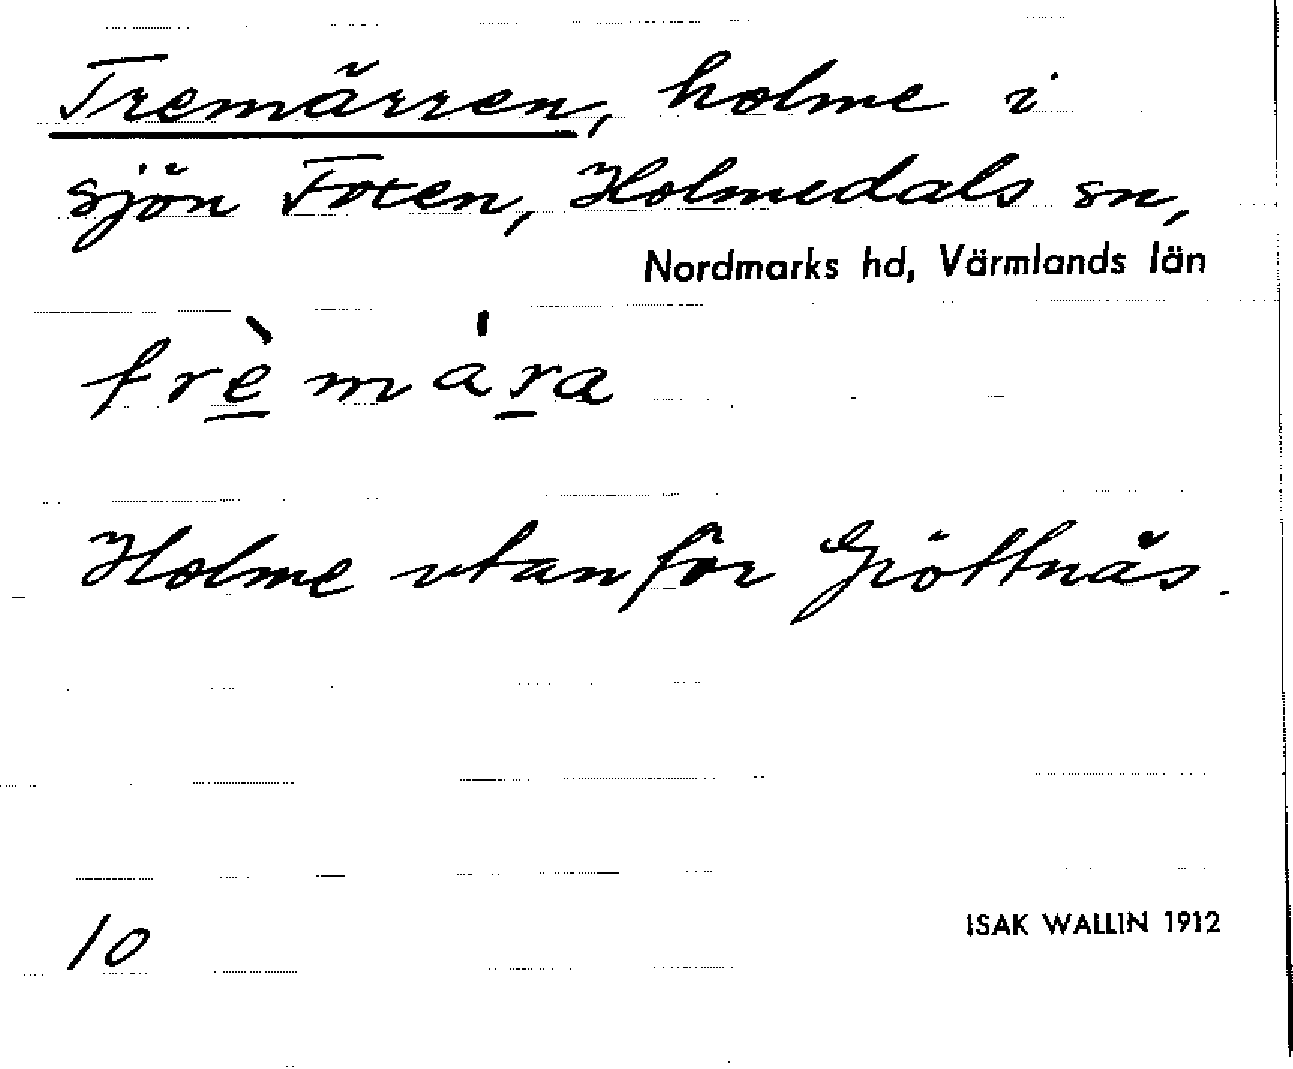 Tremärren, holme i
sjön Foxen, Holmedals sn,
Nordmarks hd, Värmlands län
trèmára
Holme utanför Gröttnäs.
10
ISAK WALLIN 1912